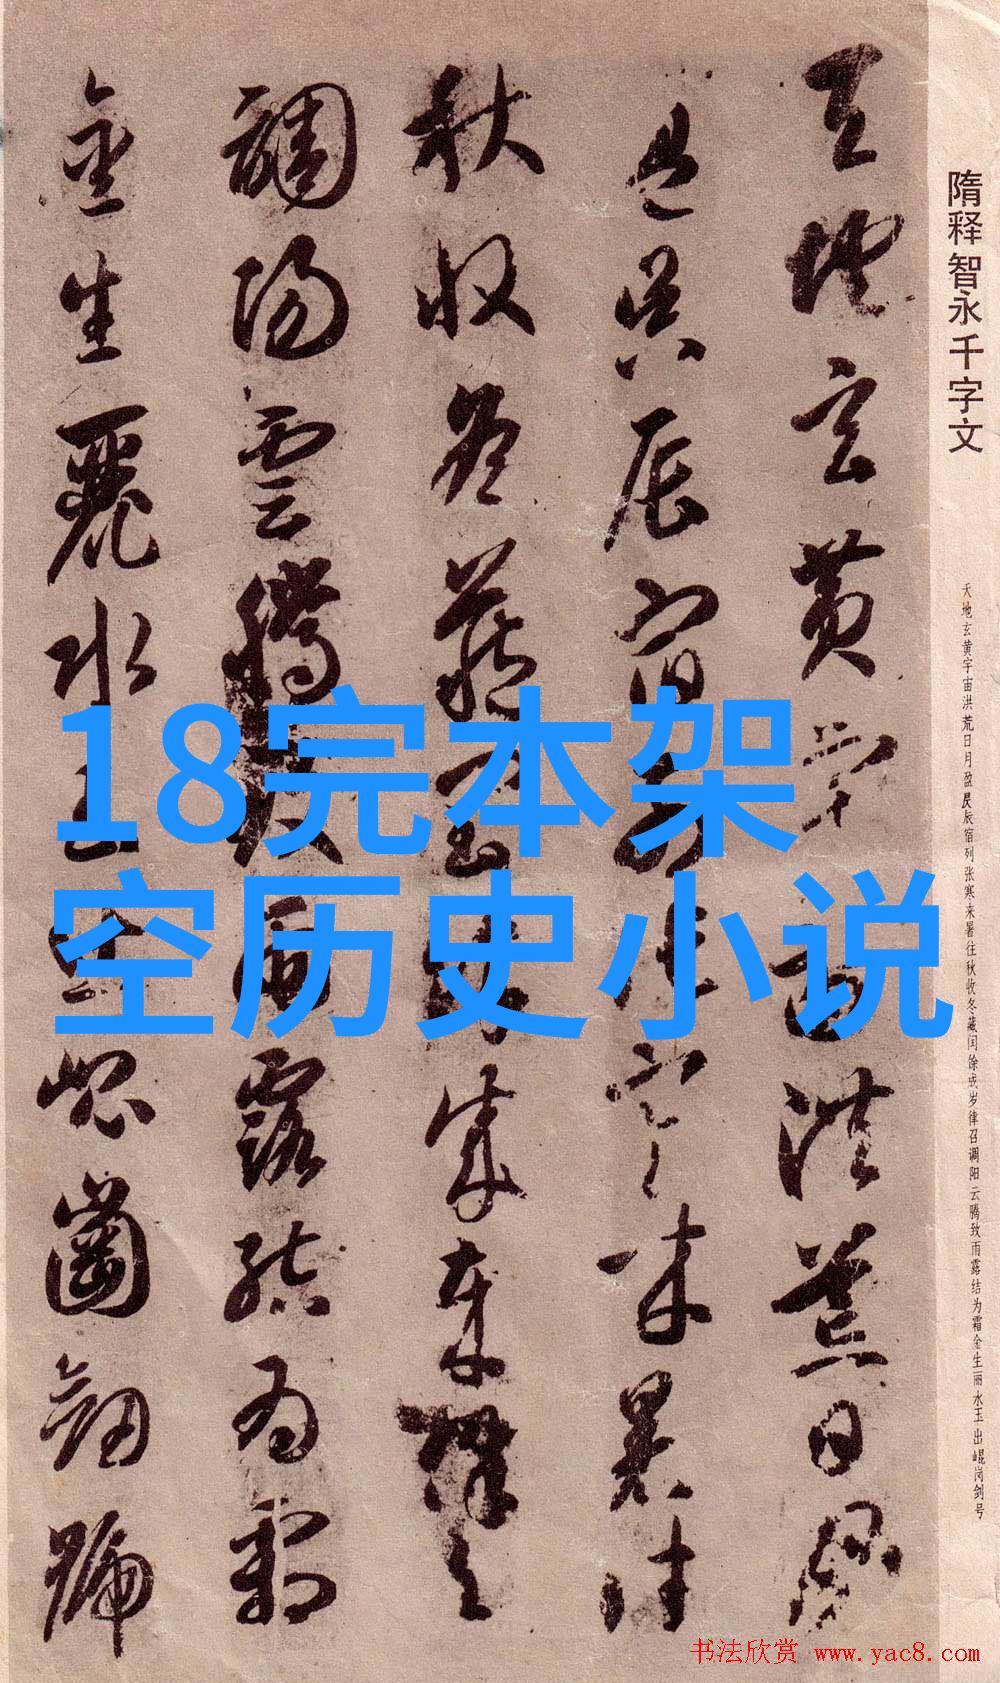 隋释智永千字文
天地玄黄宇宙洪荒日月盈昃辰宿列张寒来暑往秋收冬藏闰馀成岁律召调阳云腾致雨露结为霜金生丽水玉出崐岗剑号
天地玄黄宇宙洪荒日月
盈昃辰宿列張寒来暑往
秋收冬藏閏餘成歲律
調陽雲騰致雨露結為霜
金生麗水玉出崐崗劍號
18完本架
空历史小说
书法欣赏 www.yac8.com